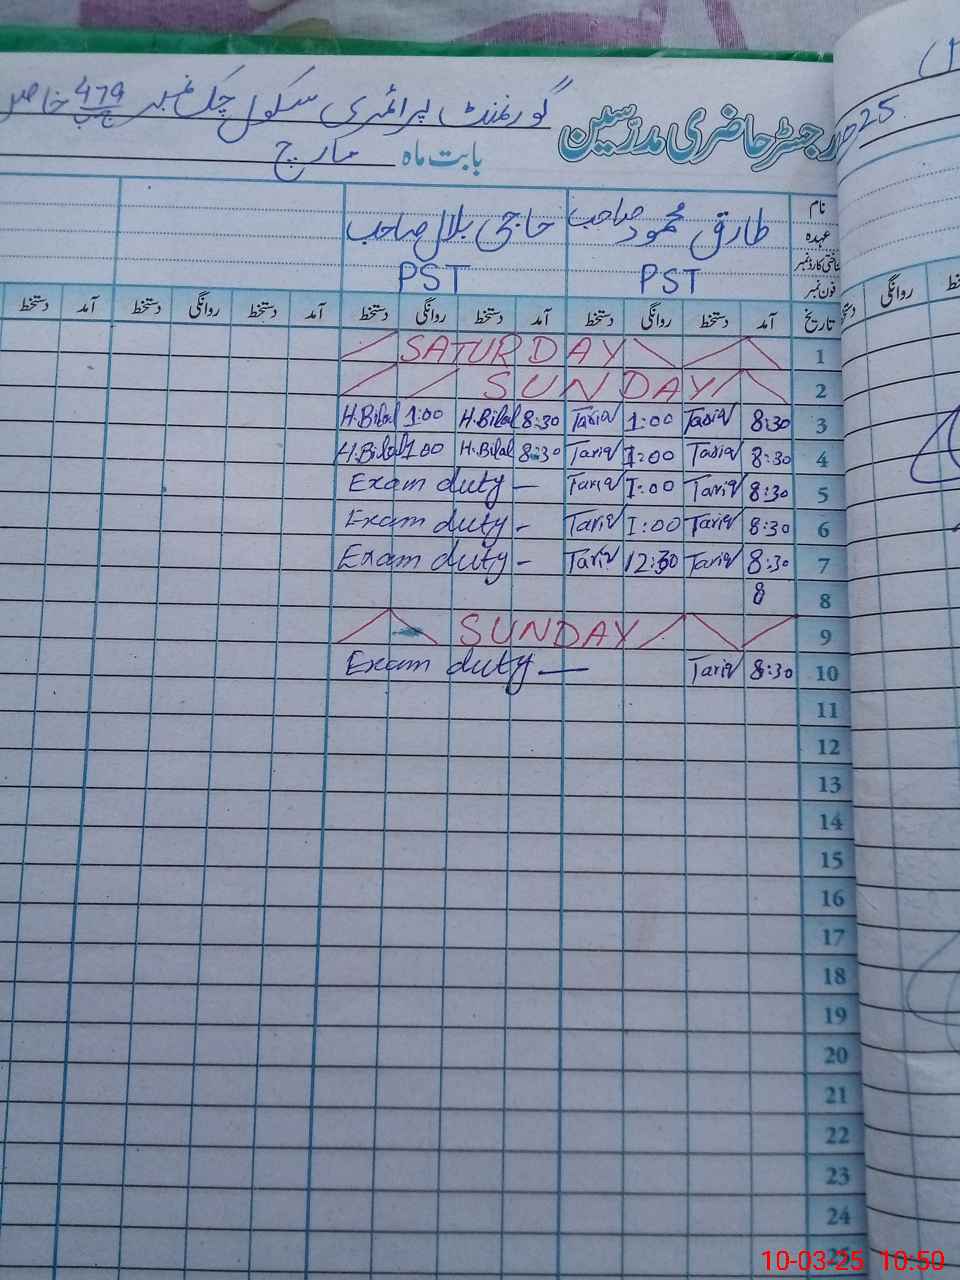 رجسٹر حاضری مدرسین گورنمنٹ پرائمری سکول چک نمبر 479 خاص
بابت ماہ مارچ
25
نام
عہدہ
فون نمبر
طارق محمود صاحب
PST
حاجی بلال صاحب
PST
تاریخ آمد دستخط روانگی دستخط آمد دستخط روانگی دستخط آمد دستخط روانگی دستخط آمد دستخط
روانگی
1 SATURDAY
2 SUNDAY
3 8:30 Tariq 1:00 Tariq 8:30 H.Bilal 1:00 H.Bilal
4 8:30 Tariq 1:00 Tariq 8:30 H.Bilal 1:00 H.Bilal
5 8:30 Tariq 1:00 Tariq Exam duty -
6 8:30 Tariq 1:00 Tariq Exam duty -
7 8:30 Tariq 12:30 Tariq Exam duty -
8 8
9 SUNDAY
10 8:30 Tariq Exam duty —
11
12
13
14
15
16
17
18
19
20
21
22
23
24
10-03-25 10:50